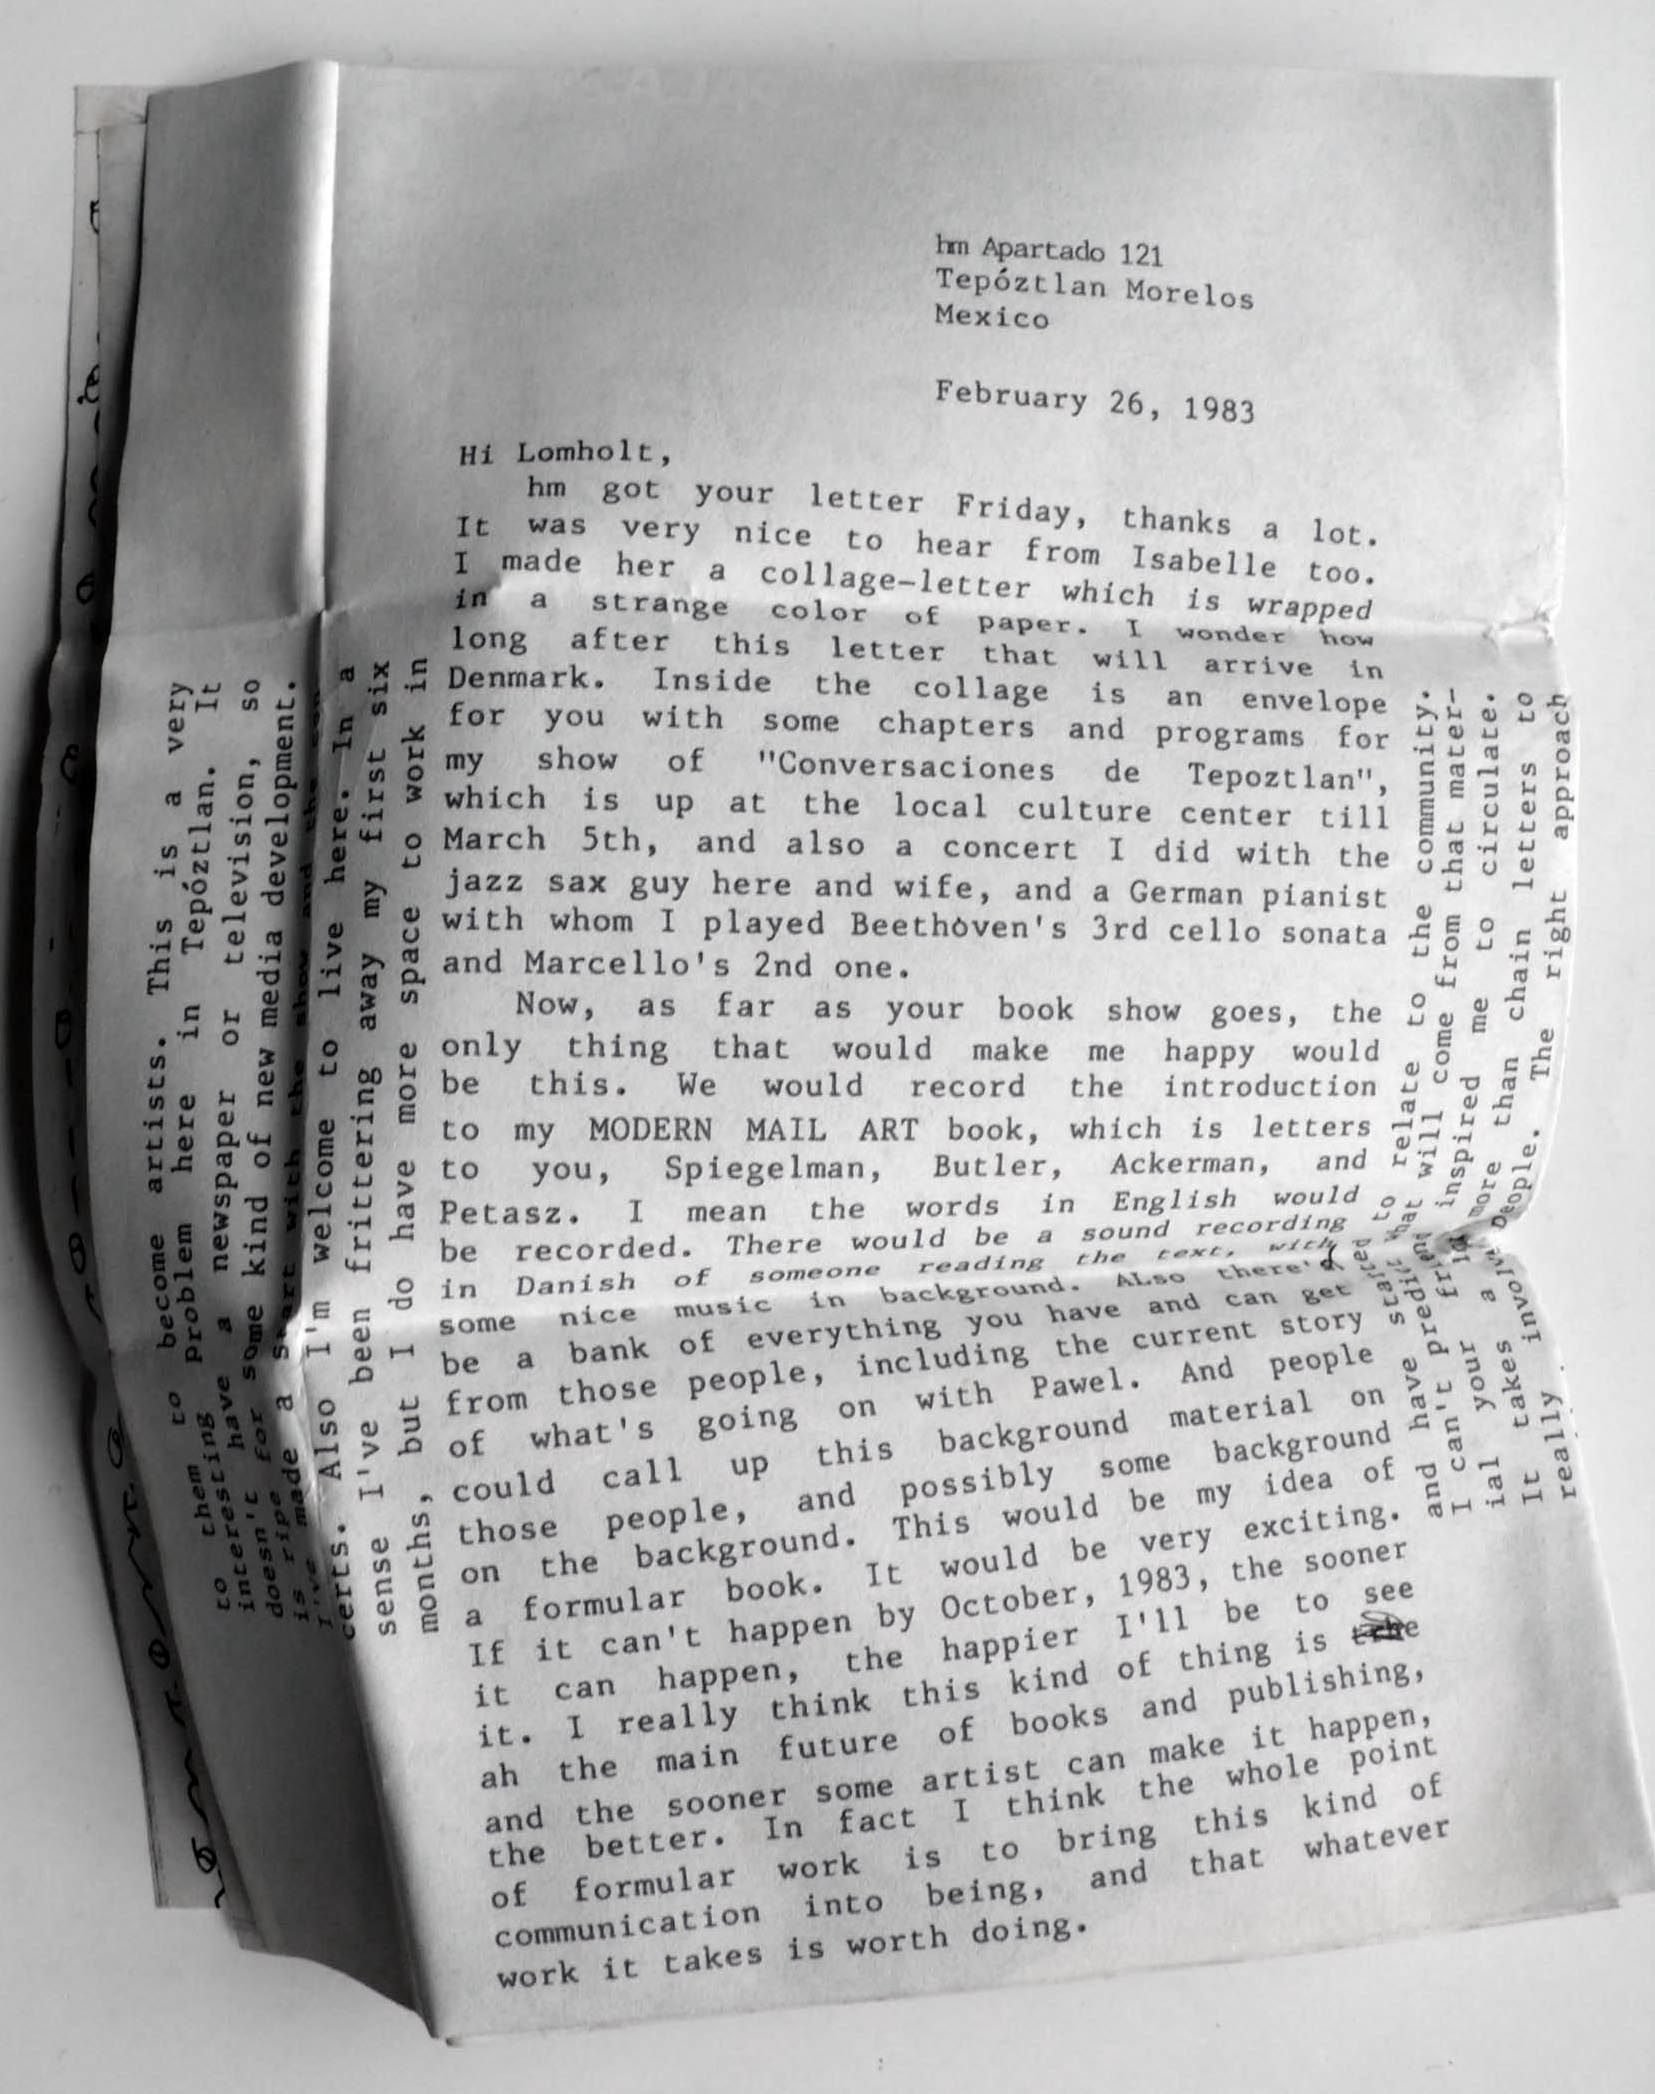 hm Apartado 121
Tepóztlan Morelos
Mexico
February 26, 1983
Hi Lomholt,
hm got your letter Friday, thanks a lot.
It was very nice to hear from Isabelle too.
I made her a collage-letter which is wrapped
in a strange color of paper. I wonder how
long after this letter that will arrive in
Denmark. Inside the collage is an envelope
for you with some chapters and programs for
my show of "Conversaciones de Tepoztlan",
which is up at the local culture center till
March 5th, and also a concert I did with the
jazz sax guy here and wife, and a German pianist
with whom I played Beethoven's 3rd cello sonata
and Marcello's 2nd one.
Now, as far as your book show goes, the
only thing that would make me happy would
be this. We would record the introduction
to my MODERN MAIL ART book, which is letters
to you, Spiegelman, Butler, Ackerman, and
Petasz. I mean the words in English would
be recorded. There would be a sound recording
in Danish of someone reading the text, with
some nice music in background. ALso there'd
be a bank of everything you have and can get
from those people, including the current story
of what's going on with Pawel. And people
could call up this background material on
those people, and possibly some background
on the background. This would be my idea of
a formular book. It would be very exciting.
If it can't happen by October, 1983, the sooner
it can happen, the happier I'll be to see
it. I really think this kind of thing is
ah the main future of books and publishing,
and the sooner some artist can make it happen,
the better. In fact I think the whole point
of formular work is to bring this kind of
communication into being, and that whatever
work it takes is worth doing.
to them to become artists. This is a very
interesting problem here in Tepóztlan. It
doesn't have a newspaper or television, so
is ripe for some kind of new media development.
I've made a start with the show and the con-
certs. Also I'm welcome to live here. In a
sense I've been frittering away my first six
months, but I do have more space to work in
and have started to relate to the community.
I can't predict what will come from that mater-
ial your friend inspired me to circulate.
It takes a lot more than chain letters to
really involve people. The right approach